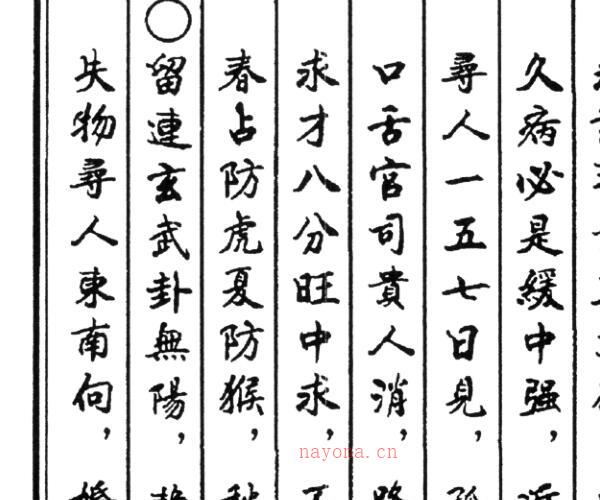 久病必是緩中强，
尋人一五七日見，
口舌官司貴人消，
求才八分旺中求，
春占防虎夏防猴，
〇留連玄武卦無陽，
失物尋人東南向，
nayona.cn